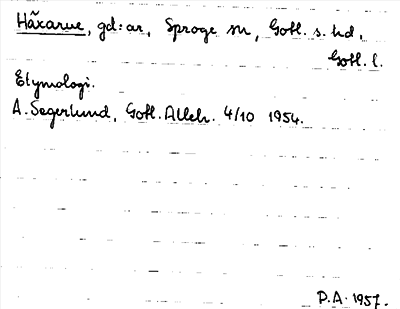 Häxarve, gd:ar, Sproge sn, Gotl. s. hd,
Gotl. l.
Etymologi.
A. Segerlund, Gotl. Alleh. 4/10 1954.
D.A. 1957.